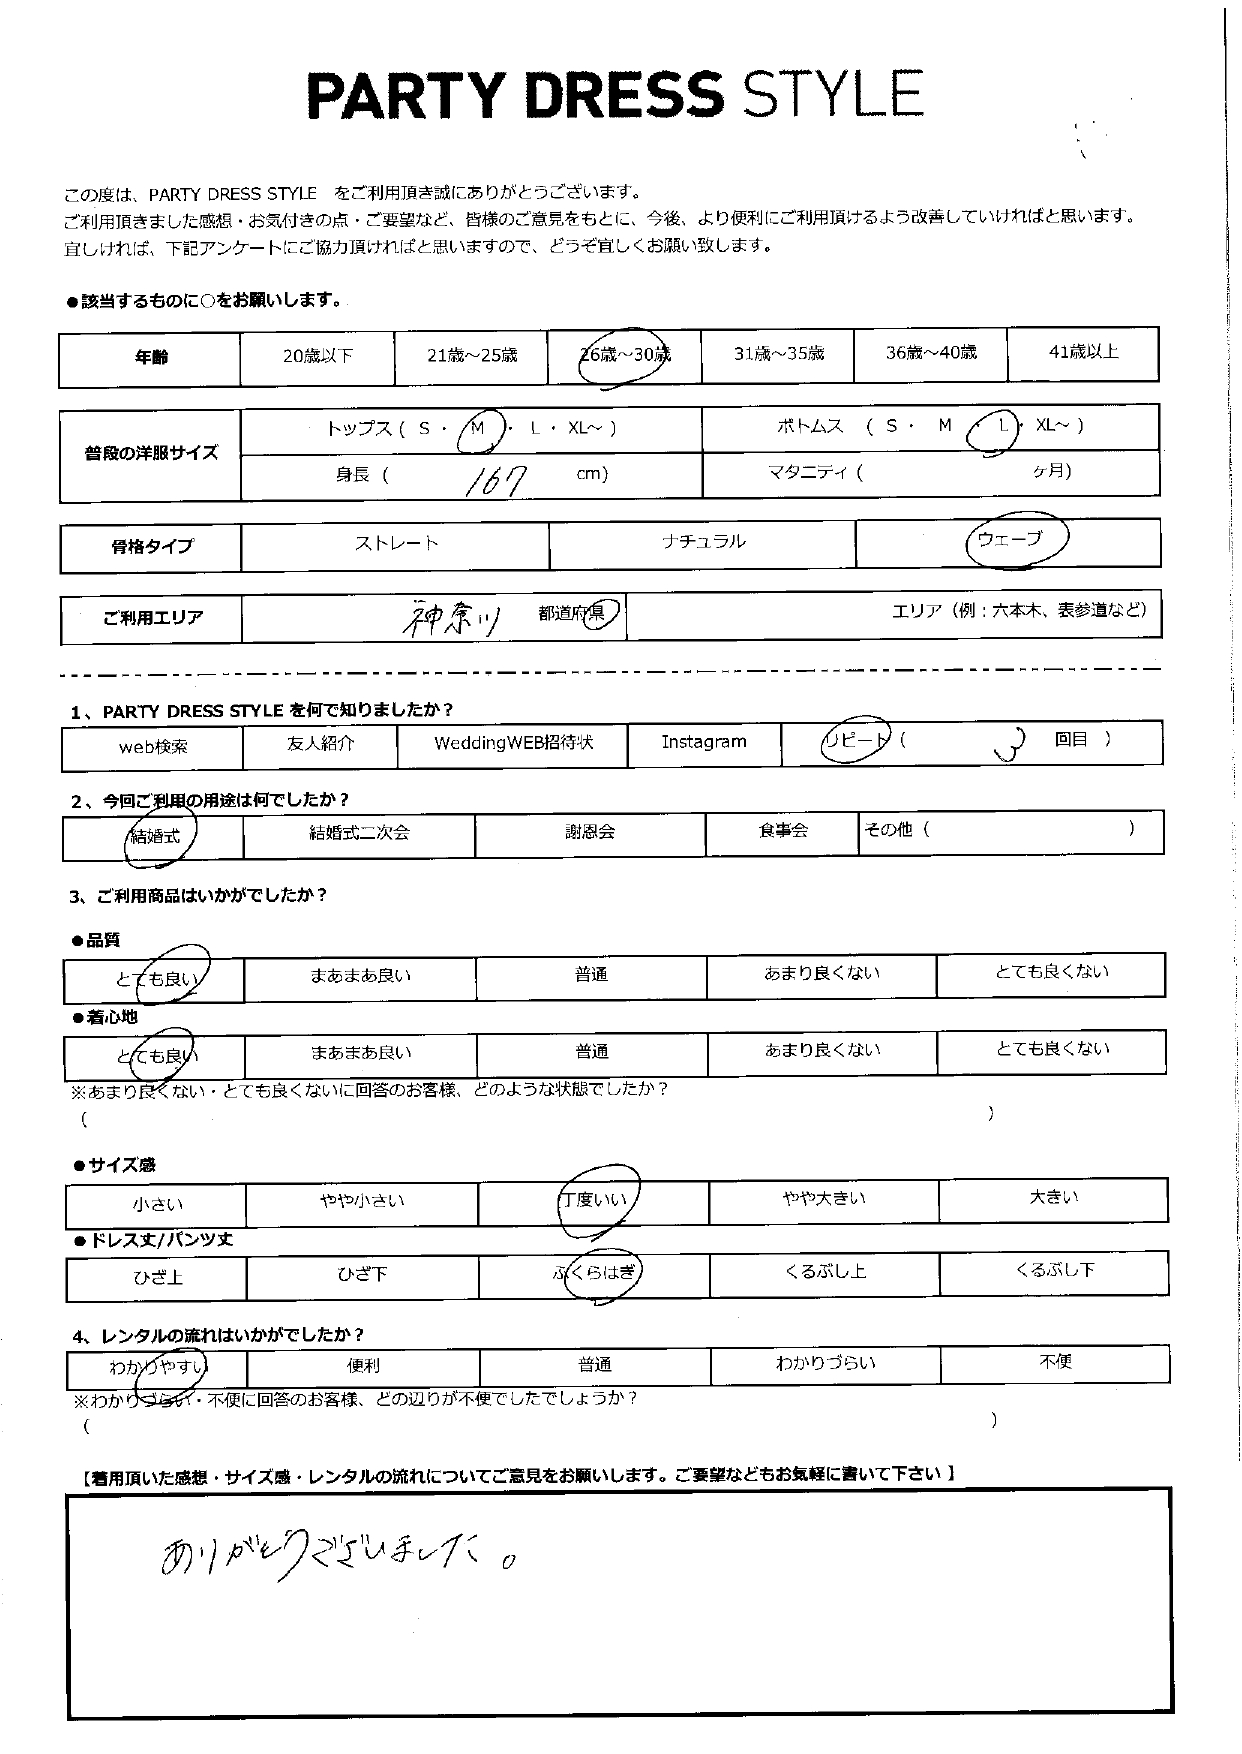 PARTY DRESS STYLE
この度は、PARTY DRESS STYLE をご利用頂き誠にありがとうございます。
ご利用頂きました感想・お気付きの点・ご要望など、皆様のご意見をもとに、今後、より便利にご利用頂けるよう改善していければと思います。
宜しければ、下記アンケートにご協力頂ければと思いますので、どうぞ宜しくお願い致します。
●該当するものに○をお願いします。
年齢 20歳以下 21歳～25歳 26歳～30歳 31歳～35歳 36歳～40歳 41歳以上
普段の洋服サイズ トップス ( S ・ M ・ L ・ XL～ ) ボトムス ( S ・ M ・ L ・ XL～ )
身長 ( 167 cm) マタニティ ( ヶ月)
骨格タイプ ストレート ナチュラル ウェーブ
ご利用エリア 神奈川 都道府県 エリア（例：六本木、表参道など）
1、PARTY DRESS STYLE を何で知りましたか？
web検索 友人紹介 WeddingWEB招待状 Instagram リピート ( 3 回目 )
2、今回ご利用の用途は何でしたか？
結婚式 結婚式二次会 謝恩会 食事会 その他 ( )
3、ご利用商品はいかがでしたか？
●品質
とても良い まあまあ良い 普通 あまり良くない とても良くない
●着心地
とても良い まあまあ良い 普通 あまり良くない とても良くない
※あまり良くない・とても良くないに回答のお客様、どのような状態でしたか？
( )
●サイズ感
小さい やや小さい 丁度いい やや大きい 大きい
●ドレス丈/パンツ丈
ひざ上 ひざ下 ふくらはぎ くるぶし上 くるぶし下
4、レンタルの流れはいかがでしたか？
わかりやすい 便利 普通 わかりづらい 不便
※わかりづらい・不便に回答のお客様、どの辺りが不便でしたでしょうか？
( )
【着用頂いた感想・サイズ感・レンタルの流れについてご意見をお願いします。ご要望などもお気軽に書いて下さい】
ありがとうございました。